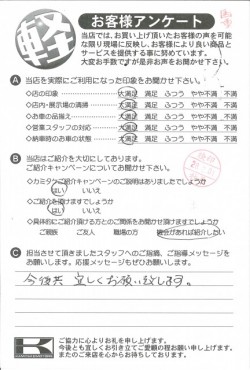 軽
お客様アンケート
当店では、お買い上げ頂いたお客様の声を可能
な限り現場に反映し、お客様により良い商品と
サービスを提供する事に努めています。
大変お手数ですが是非お声をお聞かせ下さい。
A 当店を実際にご利用になった印象をお聞かせ下さい。
◇店の印象 大満足 満足 ふつう やや不満 不満
◇店内・展示場の清掃 大満足 満足 ふつう やや不満 不満
◇お車の品揃え 大満足 満足 ふつう やや不満 不満
◇営業スタッフの対応 大満足 満足 ふつう やや不満 不満
◇納車時のお車の状態 大満足 満足 ふつう やや不満 不満
B 当店はご紹介を大切にしております。
ご紹介キャンペーンについてお聞かせ下さい。
◇カミタケご紹介キャンペーンのご説明はありましたでしょうか
はい いいえ
◇ご紹介を頂けますでしょうか
はい いいえ
◇具体的にご紹介頂ける方とのご関係をお聞かせ頂けますでしょうか
ご親族 ご友人 職場の方 機会があれば紹介したい
C 担当させて頂きましたスタッフへのご指摘、ご指導メッセージを
お願いします。応援メッセージもぜひお願いします。
今後共 宜しくお願い致します。
K
ご協力に心よりお礼を申し上げます。
今後とも宜しくお引き立てご愛顧の程お願い申し上げます。
またのご来店を心からお待ちしております。